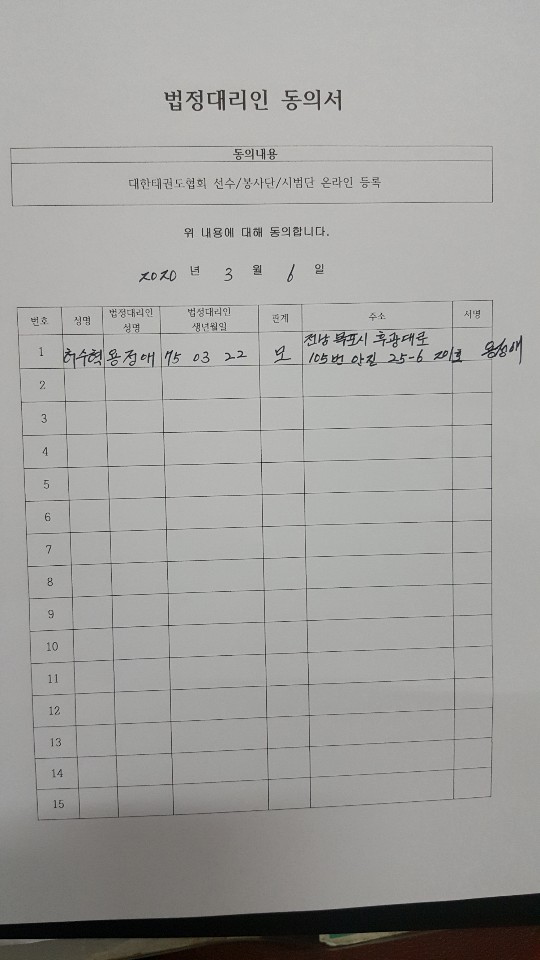 법정대리인 동의서
동의내용
대한태권도협회 선수/봉사단/시범단 온라인 등록
위 내용에 대해 동의합니다.
2020 년 3 월 6 일
번호 성명 법정대리인 성명 법정대리인 생년월일 관계 주소 서명
1 허수혁 용정애 75 03 22 모 전남 목포시 후광대로 105번 안길 25-6 201호 용정애
2
3
4
5
6
7
8
9
10
11
12
13
14
15